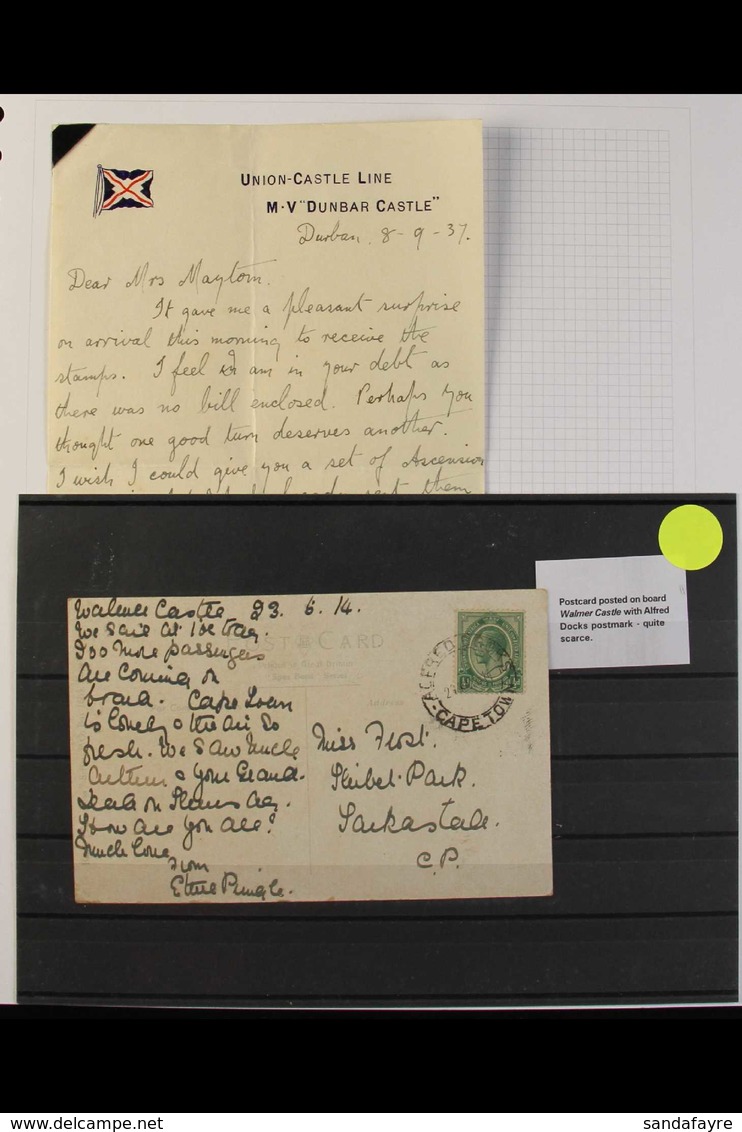 UNION-CASTLE LINE
M·V "DUNBAR CASTLE"
Durban, 8-9-37.
Dear Mrs Maytom.
It gave me a pleasant surprise
on arrival this morning to receive the
stamps. I feel I am in your debt as
there was no bill enclosed. Perhaps you
thought one good turn deserves another.
I wish I could give you a set of Ascension
sent them
Postcard posted on board
Walmer Castle with Alfred
Docks postmark - quite
scarce.
Castle 23. 6. 14.
We sail at
POST CARD
200 more passengers
are coming on
board. Cape Town
is lovely & the air so
fresh. We saw Uncle
& your Grand-
on
How are you all?
Much love
from
Ethel Pringle.
ALFRED
CAPE TOWN
½d
Miss Frost.
Park.
Tarkastad.
C.P.
delcampe.net
sandafayre